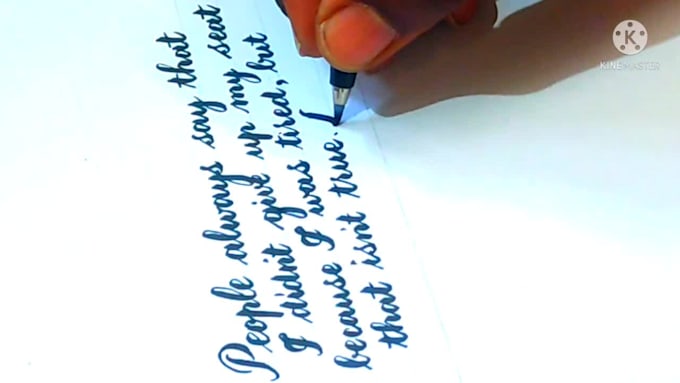 People always say that
I didn't give up my seat
because I was tired, but
that isn't true.
KINEMASTER